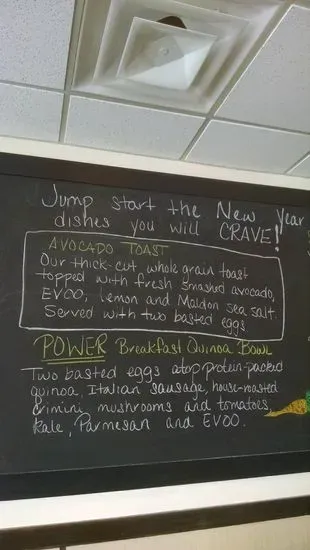 Jump start the New Year
dishes you will CRAVE!
AVOCADO TOAST
Our thick-cut whole grain toast
topped with fresh smashed avocado,
EVOO, lemon and Maldon sea salt.
Served with two basted eggs
POWER Breakfast Quinoa Bowl
Two basted eggs atop protein-packed
quinoa, Italian sausage, house-roasted
crimini mushrooms and tomatoes,
kale, Parmesan and EVOO.